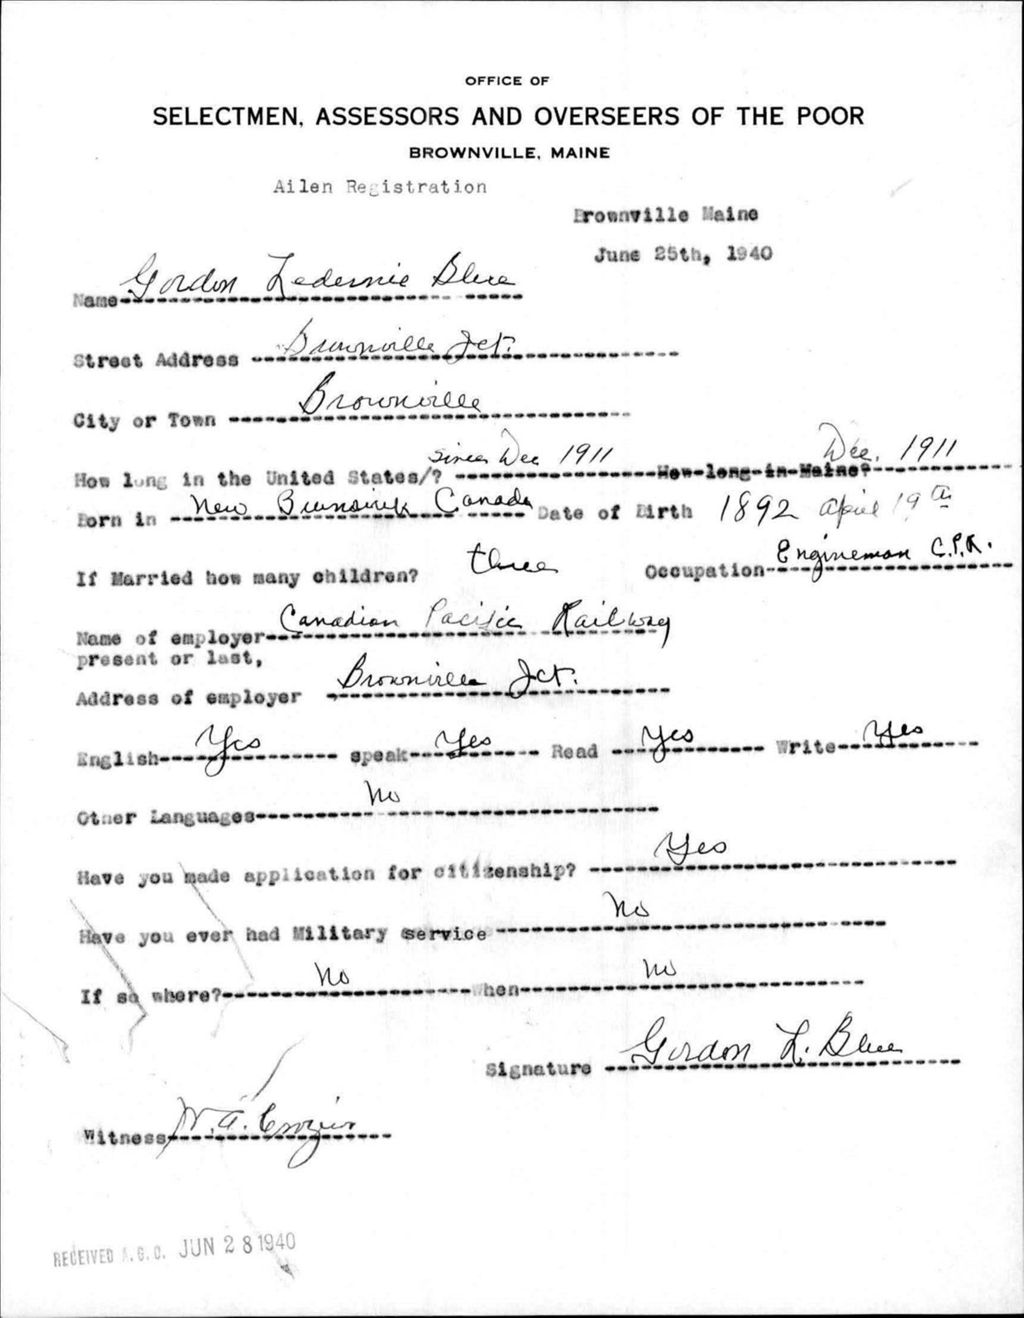 OFFICE OF
SELECTMEN, ASSESSORS AND OVERSEERS OF THE POOR
BROWNVILLE, MAINE
Ailen Registration
Brownville Maine
June 25th, 1940
Name Gordon Blue
Street Address Brownville Jct.
City or Town Brownville
How long in the United States/? since Dec 1911 How long in Maine? Dec. 1911
Born in New Brunswick Canada Date of Birth 1892 April 19th
If Married how many children? three Occupation Engineman C.P.R.
Name of employer Canadian Pacific Railway
present or last,
Address of employer Brownville Jct.
English Yes speak Yes Read Yes Write Yes
Other Languages No
Have you made application for citizenship? Yes
Have you ever had Military service No
If so where? No When No
Signature Gordon L. Blue
Witness W. A. Crozier
RECEIVED A.G.O. JUN 28 1940